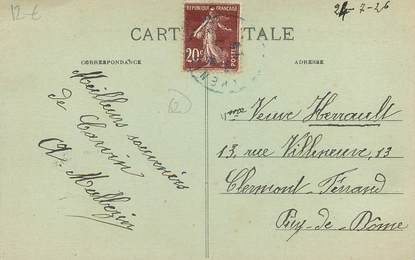 12-€
24-7-26
CARTE POSTALE
REPUBLIQUE FRANÇAISE
20c
CORRESPONDANCE
ADRESSE
Meilleurs souvenirs
de Carvin
Mme Veuve Herrault
13, rue Villeneuve, 13
Clermont-Ferrand
Puy-de-Dôme